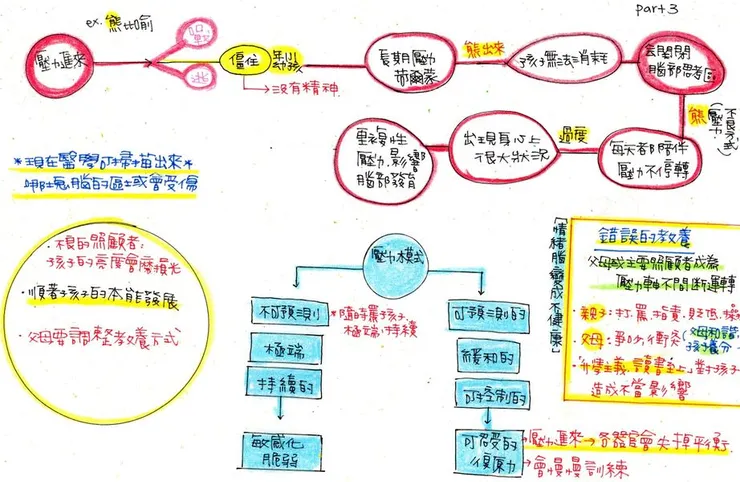 part 3
ex. 熊比喻
壓力進來
戰
逃
僵住
幼孩
→沒有精神
長期壓力
荷爾蒙
熊出來
孩子無法消耗
關閉
腦部思考區
熊
(壓力)
不良方式
每天者即陪伴
壓力不停轉
過度
出現身心上
很大狀況
重複性
壓力,影響
腦部發育
*現在醫學可掃描出來*
哪塊腦的區域會受傷
·不良的照顧者:
孩子的亮度會磨損光
·順著孩子的本能發展
·父母要調整教養方式
壓力模式
不可預測
極端
持續的
敏感化
脆弱
*隨時罵孩子,
極端,持續
可預測的
緩和的
可控制的
可忍受的
復原力
壓力進來→各器官會失掉平衡
→會慢慢訓練
「情緒腦變成不健康」
錯誤的教養
父母或主要照顧者成為
壓力軸不間斷運轉
·親子:打罵,指責,貶低,操
·父母:爭吵,衝突(父母和諧
孩子養分
·升學主義,讀書至上,對孩子
造成不當影響